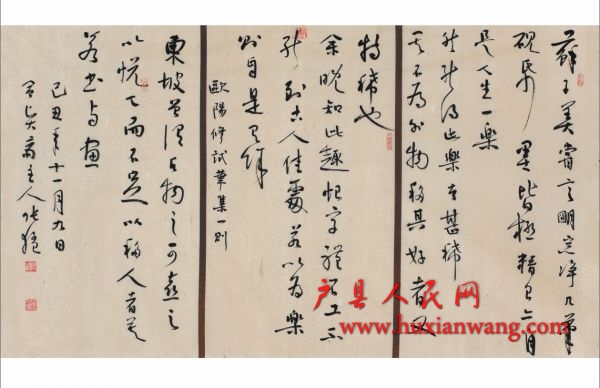 蘇子美嘗言明窗净几筆
硯紙墨皆極精良亦自
是人生一樂
然能得此樂者甚稀
其不為外物移其好者又
特稀也
余晚知此趣恨字體不工不
能到古人佳處若以為樂
則自是有餘
歐陽修試筆集一則
東坡嘗謂凡物之可喜足
以悅人而不足以移人者莫
若書與畫
己丑年十一月九日
齋主人張
户县人民网
www.huxianwang.com